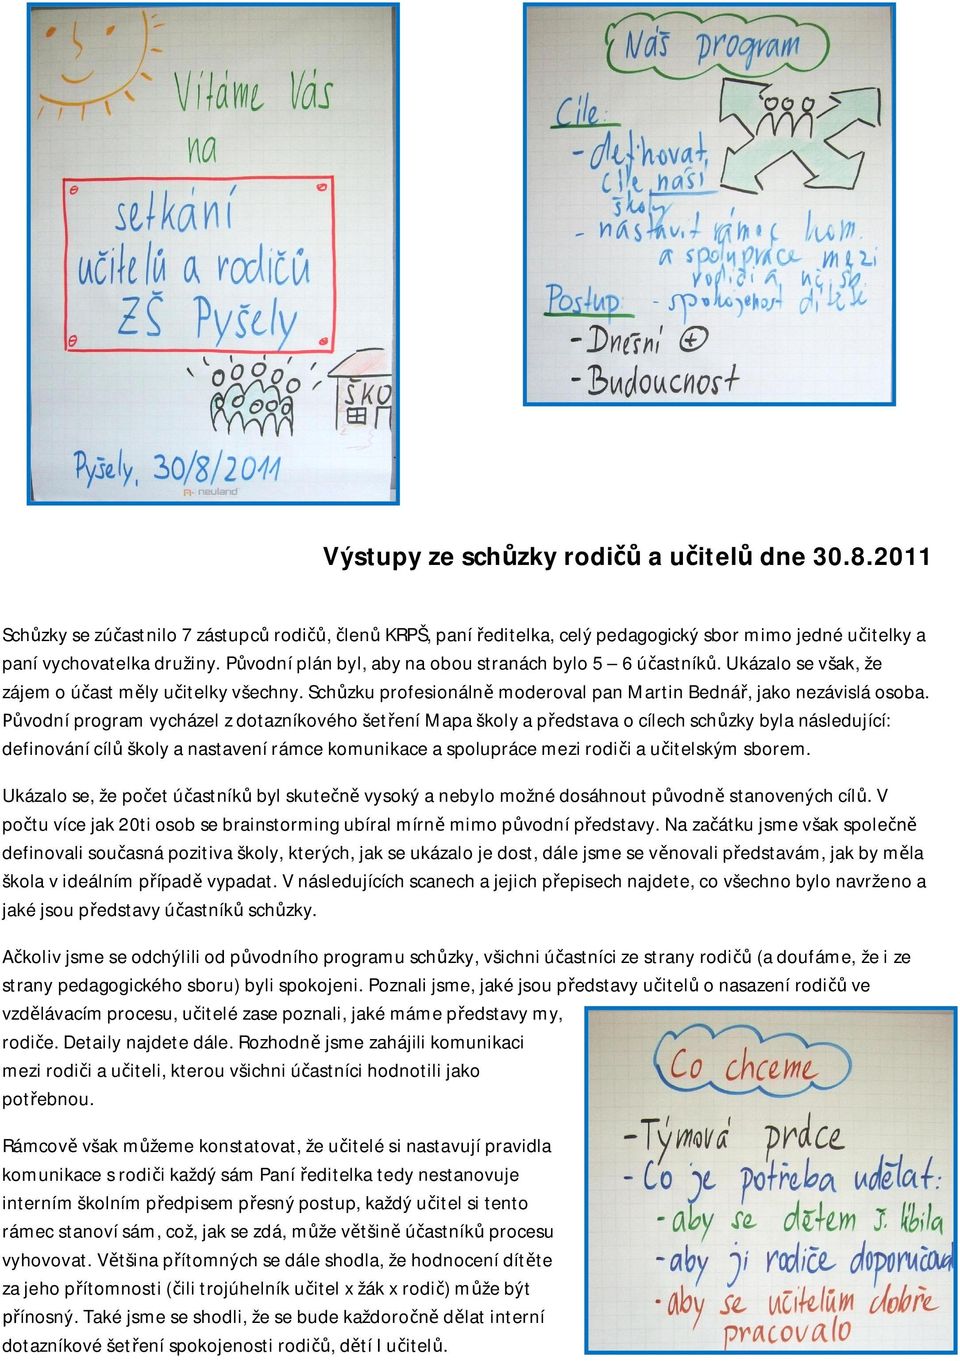 Vítáme Vás
na
setkání
učitelů a rodičů
ZŠ Pyšely
ŠKO
Pyšely, 30/8/2011
neuland
Náš program
Cíle:
- definovat
cíle naší
školy
- nastavit rámec kom.
a spolupráce mezi
rodiči a
Postup: - spokojenost dítěte
- Dnešní +
- Budoucnost
Výstupy ze schůzky rodičů a učitelů dne 30.8.2011
Schůzky se zúčastnilo 7 zástupců rodičů, členů KRPŠ, paní ředitelka, celý pedagogický sbor mimo jedné učitelky a
paní vychovatelka družiny. Původní plán byl, aby na obou stranách bylo 5 – 6 účastníků. Ukázalo se však, že
zájem o účast měly učitelky všechny. Schůzku profesionálně moderoval pan Martin Bednář, jako nezávislá osoba.
Původní program vycházel z dotazníkového šetření Mapa školy a představa o cílech schůzky byla následující:
definování cílů školy a nastavení rámce komunikace a spolupráce mezi rodiči a učitelským sborem.
Ukázalo se, že počet účastníků byl skutečně vysoký a nebylo možné dosáhnout původně stanovených cílů. V
počtu více jak 20ti osob se brainstorming ubíral mírně mimo původní představy. Na začátku jsme však společně
definovali současná pozitiva školy, kterých, jak se ukázalo je dost, dále jsme se věnovali představám, jak by měla
škola v ideálním případě vypadat. V následujících scanech a jejich přepisech najdete, co všechno bylo navrženo a
jaké jsou představy účastníků schůzky.
Ačkoliv jsme se odchýlili od původního programu schůzky, všichni účastníci ze strany rodičů (a doufáme, že i ze
strany pedagogického sboru) byli spokojeni. Poznali jsme, jaké jsou představy učitelů o nasazení rodičů ve
vzdělávacím procesu, učitelé zase poznali, jaké máme představy my,
rodiče. Detaily najdete dále. Rozhodně jsme zahájili komunikaci
mezi rodiči a učiteli, kterou všichni účastníci hodnotili jako
potřebnou.
Rámcově však můžeme konstatovat, že učitelé si nastavují pravidla
komunikace s rodiči každý sám Paní ředitelka tedy nestanovuje
interním školním předpisem přesný postup, každý učitel si tento
rámec stanoví sám, což, jak se zdá, může většině účastníků procesu
vyhovovat. Většina přítomných se dále shodla, že hodnocení dítěte
za jeho přítomnosti (čili trojúhelník učitel x žák x rodič) může být
přínosný. Také jsme se shodli, že se bude každoročně dělat interní
dotazníkové šetření spokojenosti rodičů, dětí I učitelů.
Co chceme
- Týmová práce
- Co je potřeba udělat:
- aby se dětem š. líbila
- aby ji rodiče doporučova
- aby se učitelům dobře
pracovalo